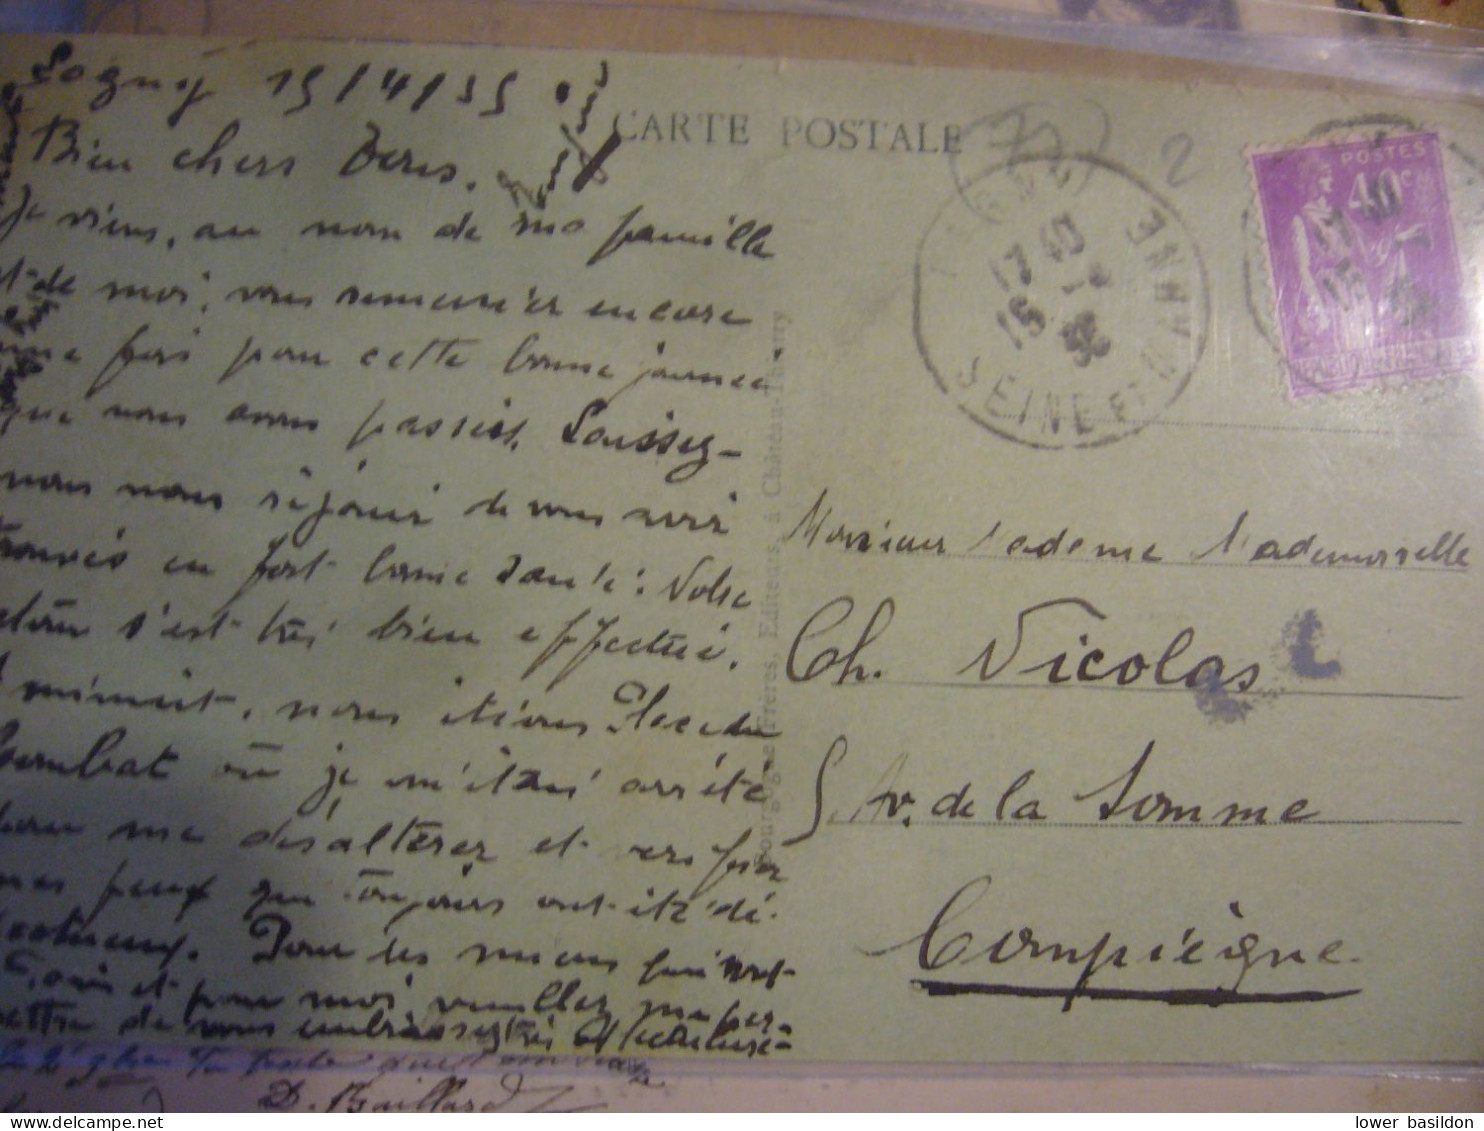 Lagny 15/4/35
Bien chers Tous.
Je viens, au nom de ma famille
et de moi, vous remercier encore
une fois pour cette bonne journée
que nous avons passés. Laissez-
nous nous réjouir de vous avoir
trouvés en fort bonne santé. Notre
retour s'est très bien effectué.
A minuit, nous étions Place du
Combat où je m'étais arrêté
pour me désaltérer et
mes que toujours ont été dé-
Pour les miens qui sont
et pour moi, veuillez me per-
mettre de vous embrasser très affectueuse-
CARTE POSTALE
Bourgogne Frères, Editeurs, à Château-Thierry
2
SEINE ET MARNE
17 40
15 4
35
POSTES
40c
Monsieur Madame Mademoiselle
Ch. Nicolas
5. Av. de la Somme
Compiègne
D. Baillard
lower basildon